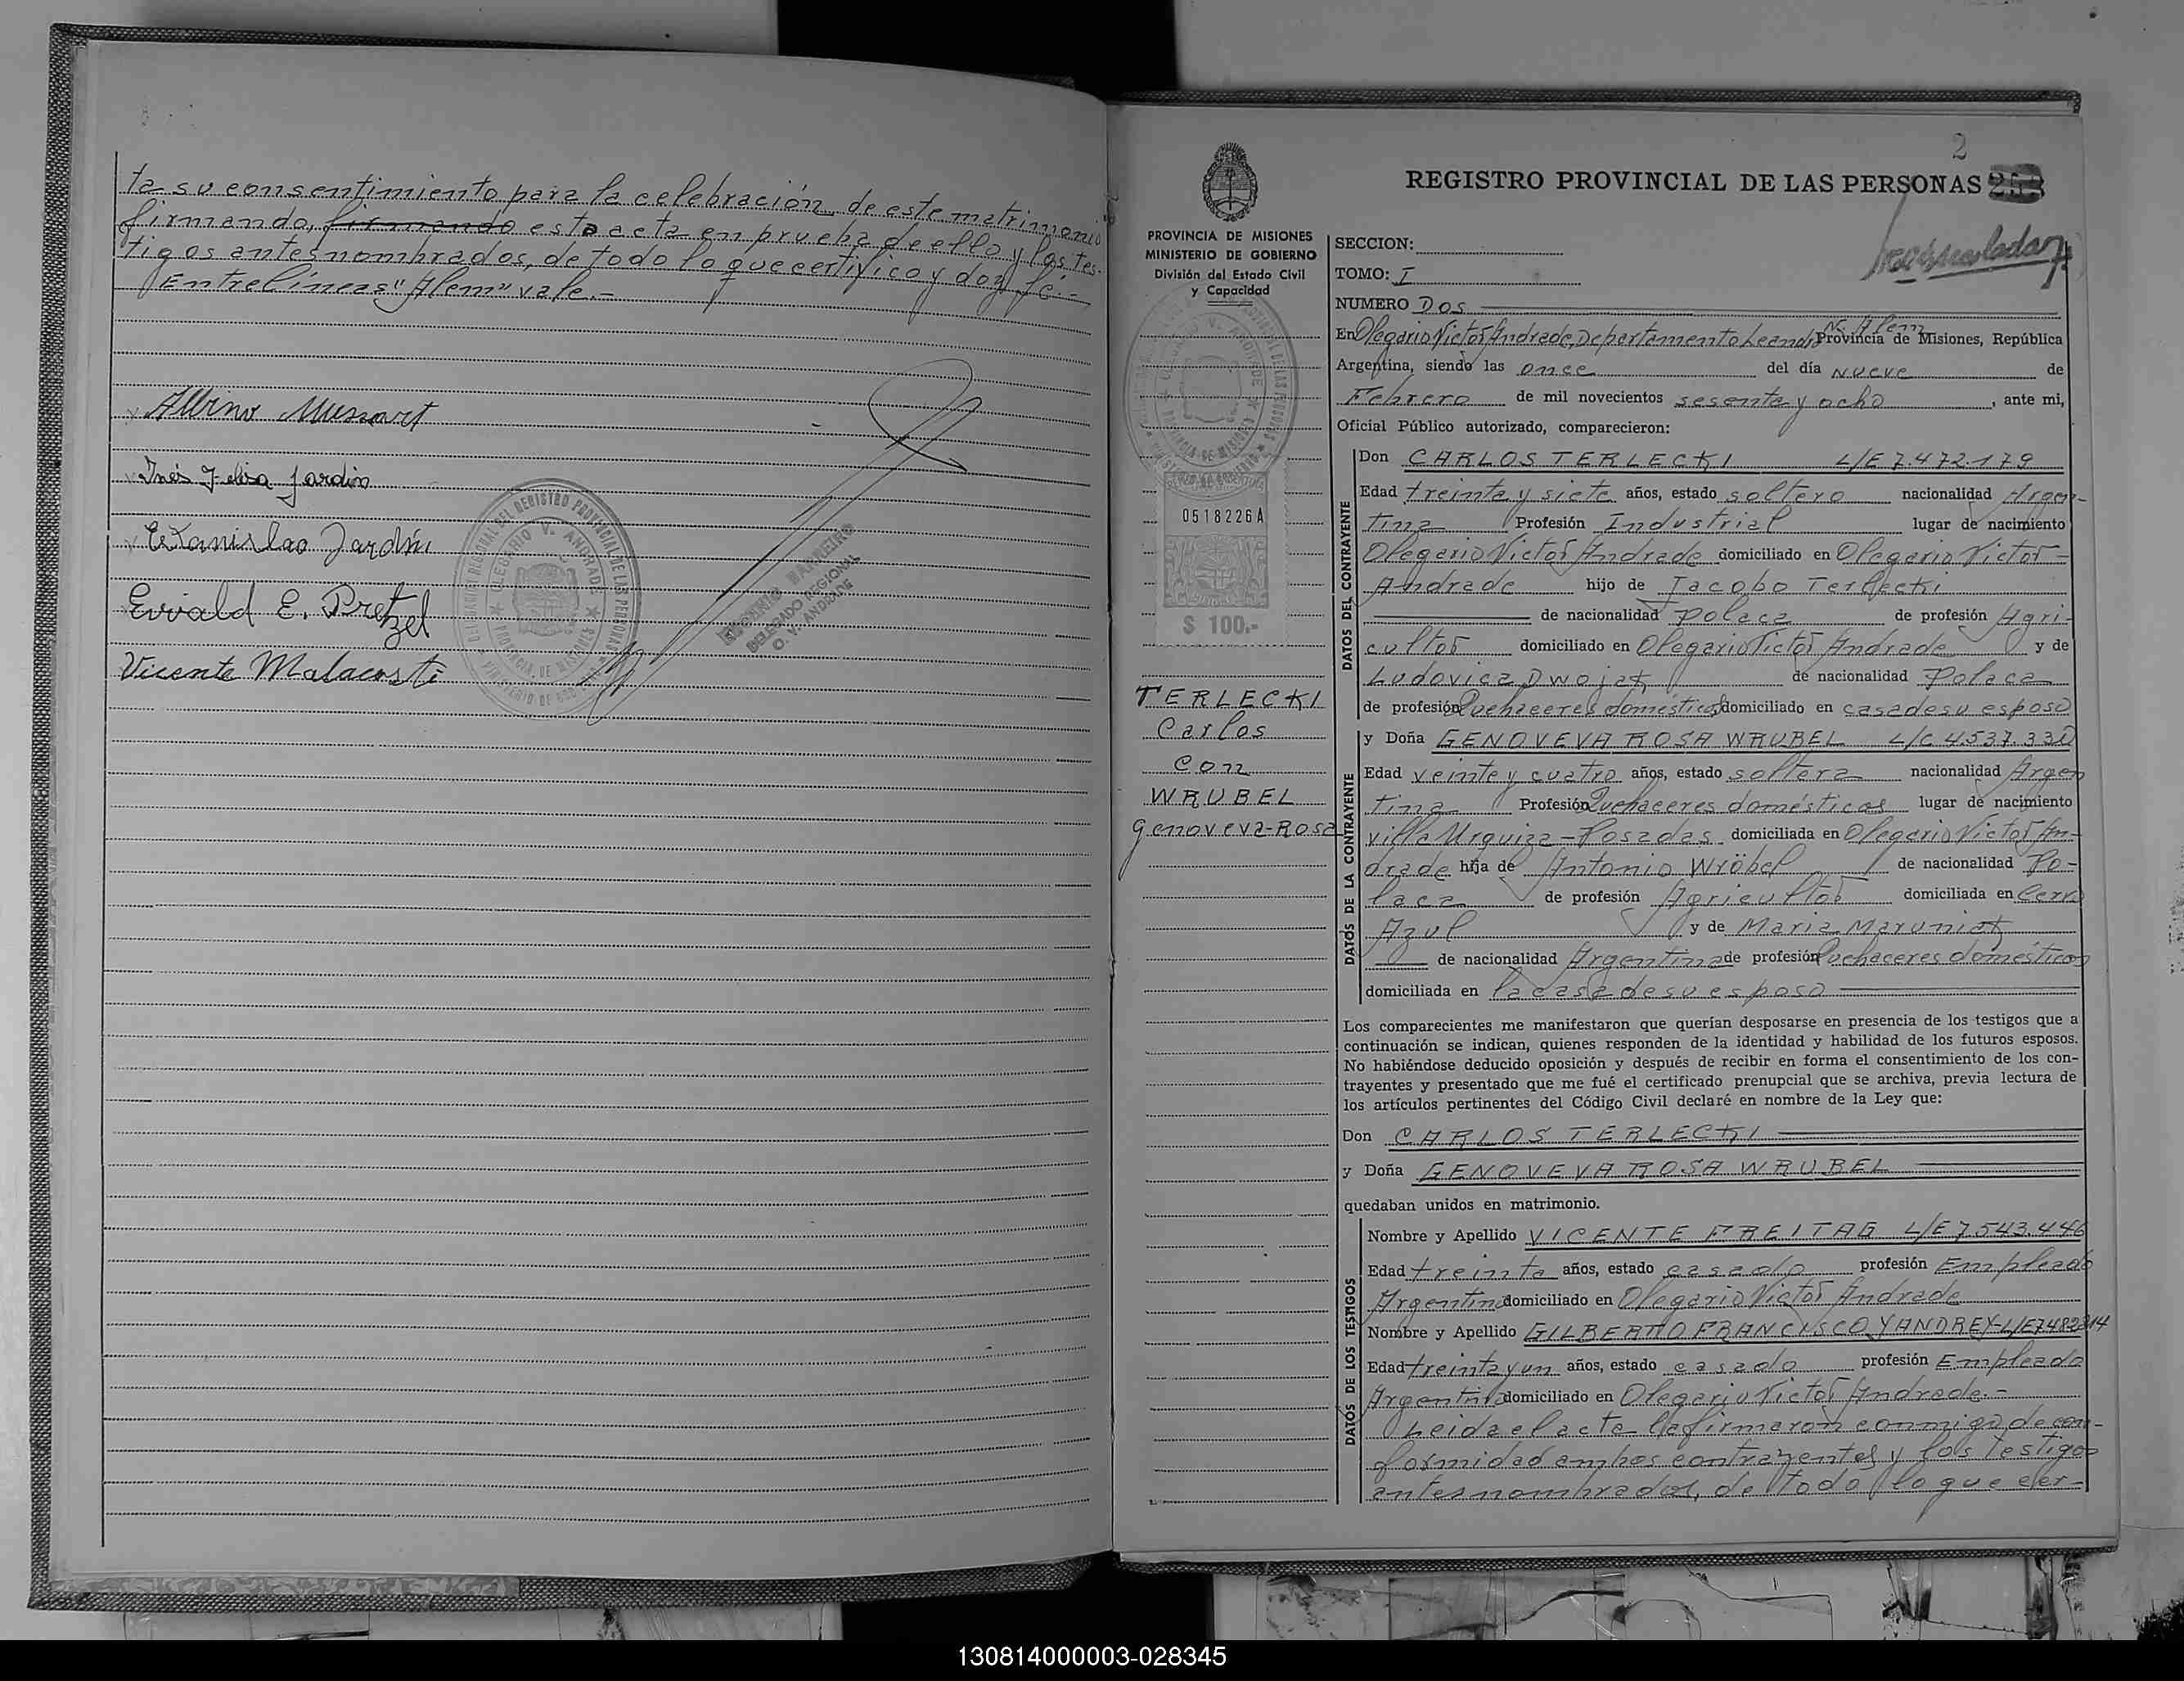 ta su consentimiento para la celebración de este matrimonio
firmando, firmando esta acta en prueba de ello y los tes-
tigos antes nombrados, de todo lo que certifico y doy fé.-
Entrelíneas "Alem" vale.-
Albino
Inés Felisa Jardin
Estanislao Jardin
Ewald E. Pretzel
Vicente Malacosti
DELEGADO REGIONAL
O. V. ANDRADE
2
REGISTRO PROVINCIAL DE LAS PERSONAS
PROVINCIA DE MISIONES
MINISTERIO DE GOBIERNO
División del Estado Civil
y Capacidad
0518226A
$ 100.-
TERLECKI
Carlos
con
WRUBEL
Genoveva-Rosa
SECCION:
TOMO: I
NUMERO DOS
N. Alem
En Olegario Victor Andrade, Departamento Leandro Provincia de Misiones, República
Argentina, siendo las once del día nueve de
Febrero de mil novecientos sesenta y ocho, ante mi,
Oficial Público autorizado, comparecieron:
DATOS DEL CONTRAYENTE
Don CARLOS TERLECKI L/E 7.472.179
Edad treinta y siete años, estado soltero nacionalidad Argen-
tina Profesión Industrial lugar de nacimiento
Olegario Victor Andrade domiciliado en Olegario Victor
Andrade hijo de Jacobo Terlecki
de nacionalidad Polaca de profesión Agri-
cultor domiciliado en Olegario Victor Andrade y de
Ludovica Dwojak de nacionalidad Polaca
de profesión Quehaceres domésticos domiciliado en casa de su esposo
DATOS DE LA CONTRAYENTE
y Doña GENOVEVA ROSA WRUBEL L/C 4.537.330
Edad veinte y cuatro años, estado soltera nacionalidad Argen
tina Profesión Quehaceres domésticos lugar de nacimiento
Villa Urquiza-Posadas domiciliada en Olegario Victor An-
drade hija de Antonio Wróbel de nacionalidad Po-
laca de profesión Agricultor domiciliada en Cerro
Azul y de Maria Maruniak
de nacionalidad Argentina de profesión Quehaceres domésticos
domiciliada en la casa de su esposo
Los comparecientes me manifestaron que querían desposarse en presencia de los testigos que a
continuación se indican, quienes responden de la identidad y habilidad de los futuros esposos.
No habiéndose deducido oposición y después de recibir en forma el consentimiento de los con-
trayentes y presentado que me fué el certificado prenupcial que se archiva, previa lectura de
los artículos pertinentes del Código Civil declaré en nombre de la Ley que:
Don CARLOS TERLECKI
y Doña GENOVEVA ROSA WRUBEL
quedaban unidos en matrimonio.
DATOS DE LOS TESTIGOS
Nombre y Apellido VICENTE FREITAG L/E 7.543.446
Edad treinta años, estado casado profesión Empleado
Argentino domiciliado en Olegario Victor Andrade
Nombre y Apellido GILBERTO FRANCISCO YANDREY-L/E7482214
Edad treinta y un años, estado casado profesión Empleado
Argentino domiciliado en Olegario Victor Andrade.-
Leida el acta la firmaron conmigo de con-
formidad ambos contrayentes y los testigos
antes nombrados, de todo lo que cer-
130814000003-028345